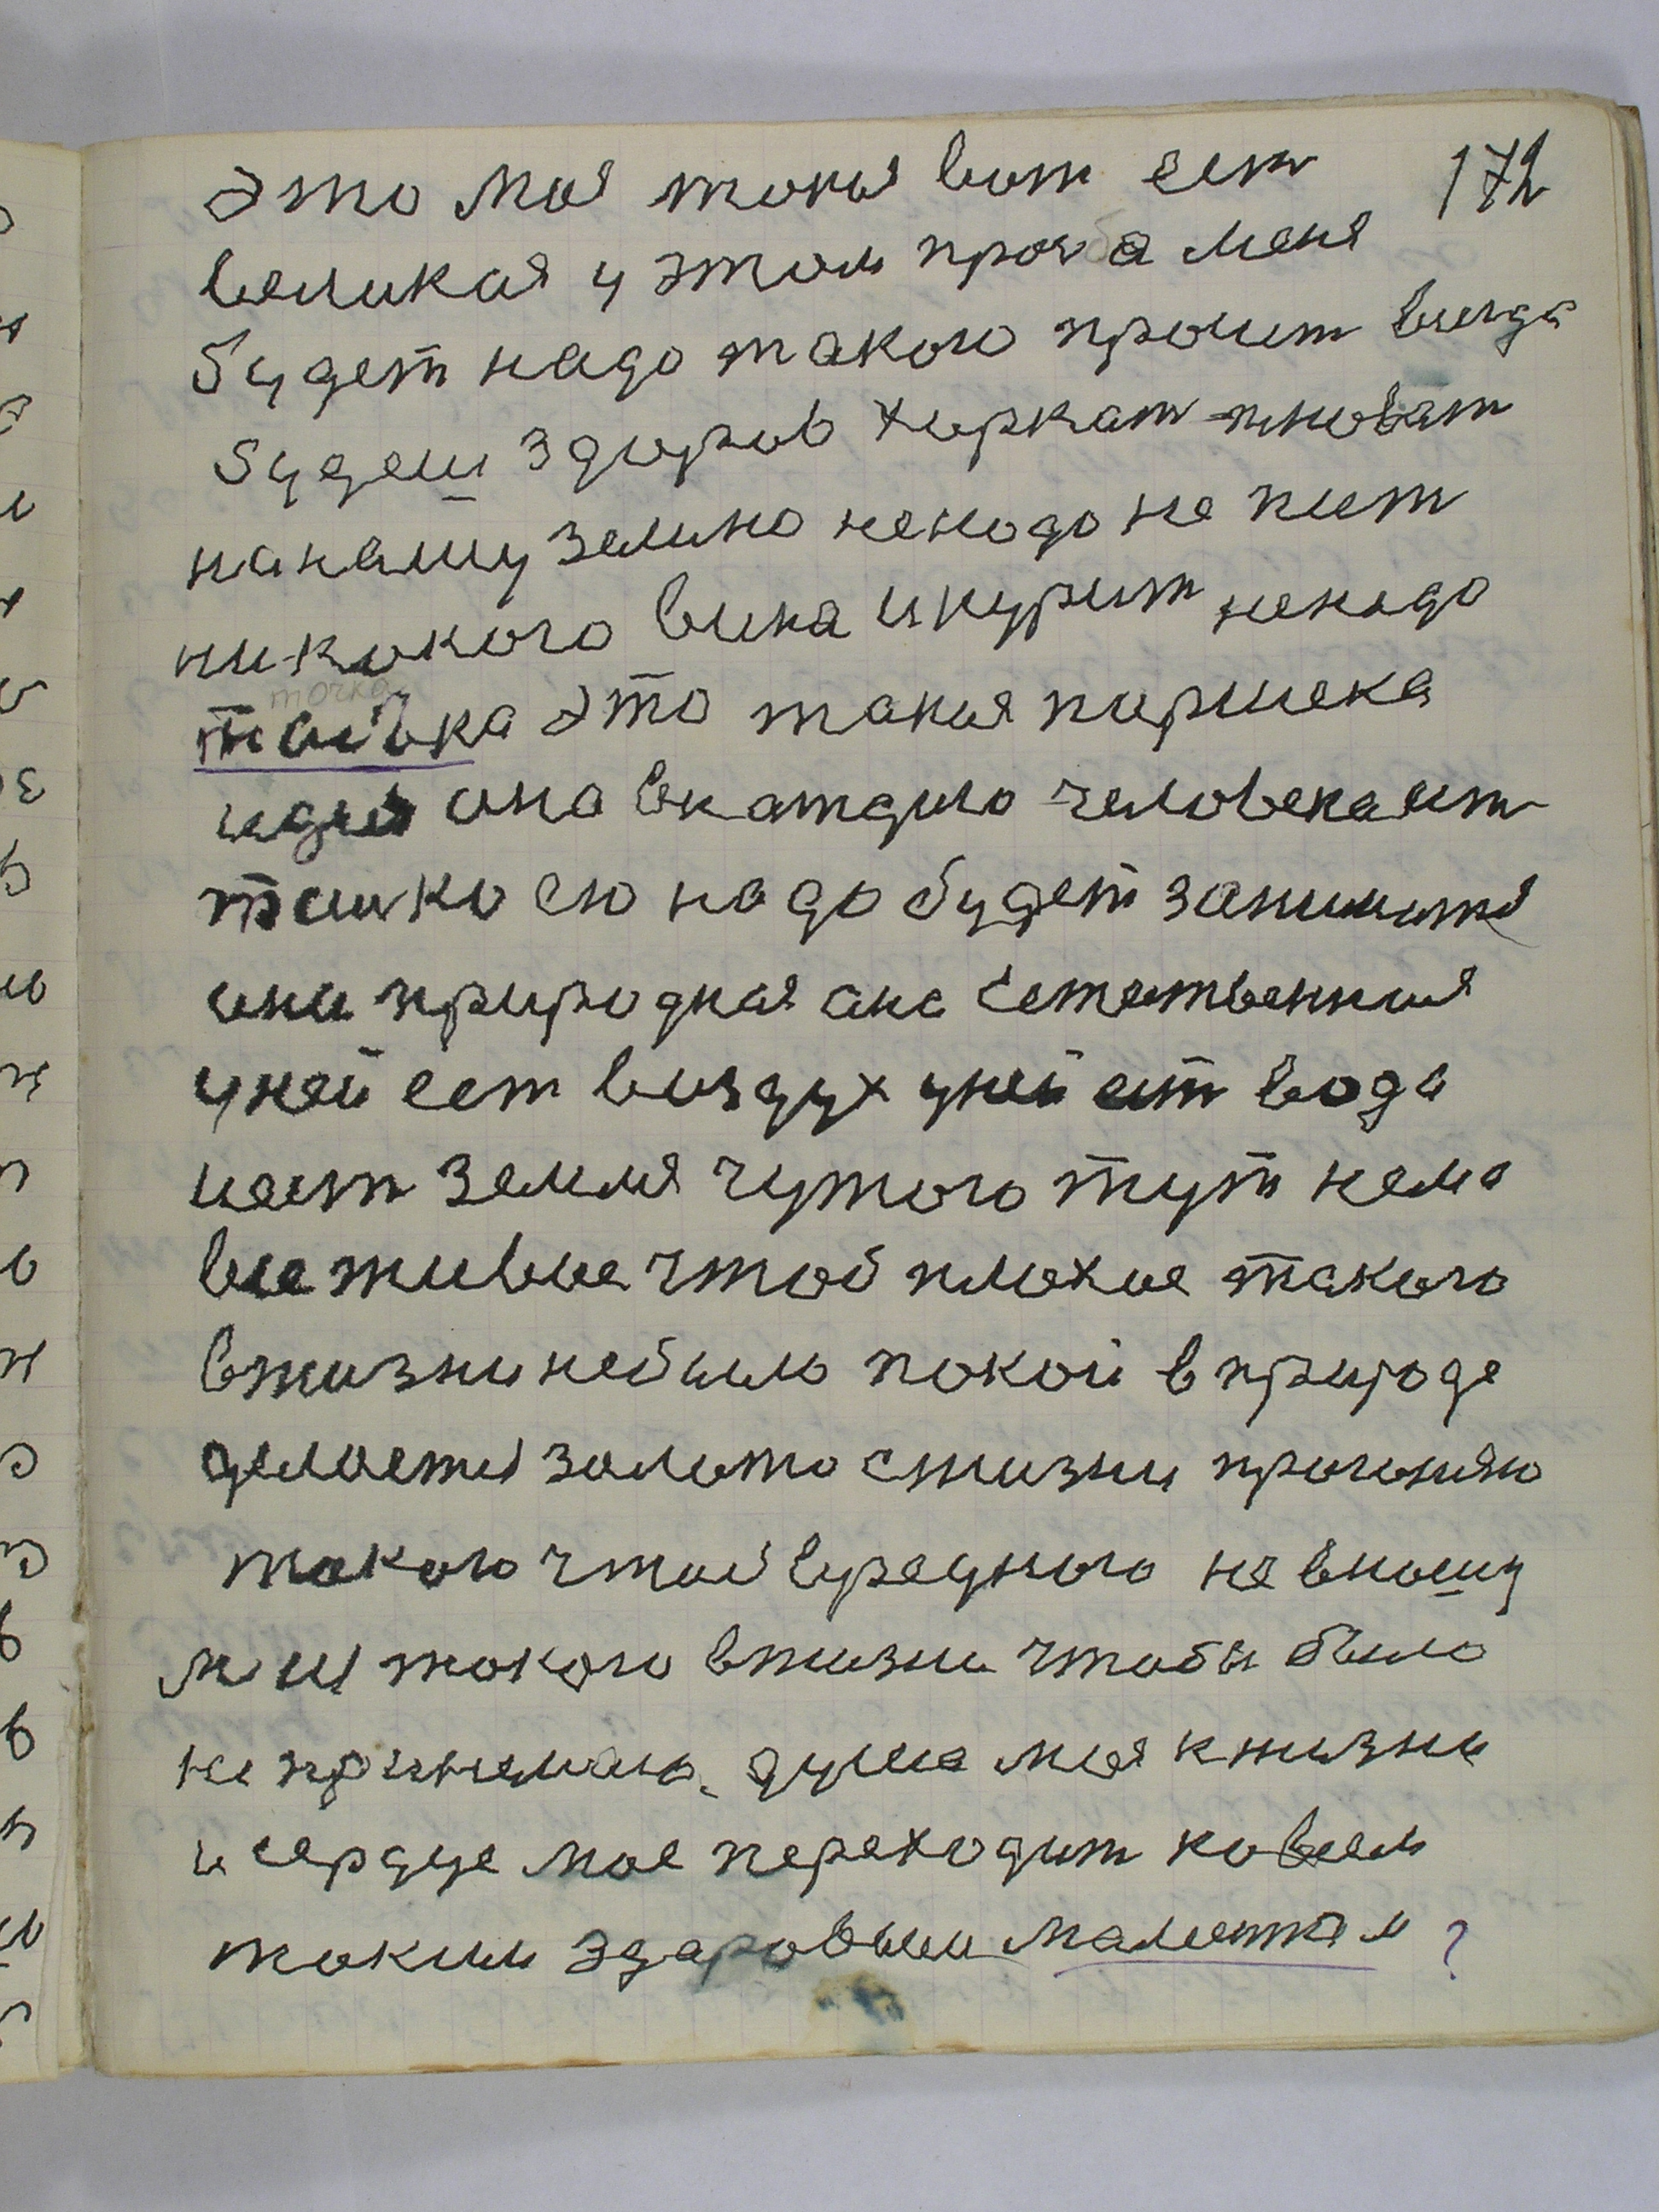 172
Это моя такая вот ест
великая у этом прозба меня
будет надо такого просит всегда
будеш здоров харкат плюват
на нашу землю ненадо не пит
никакого вина и курит ненадо
точка
это такая
она вкаждого человека ест
толко ею надо будет заниматся
она природная она естественная
у ней ест воздух у ней ест вода
и ест земля чужого тут нема
все живые чтоб плохое такого
вжизни небыло покой в природе
делается золото сжизни прогоняю
такого чтоб вредного не вношу
такого вжизни чтобы было
не принимаю. душа моя кжизни
и сердце мое переходит ко всем
таким здаровым ?